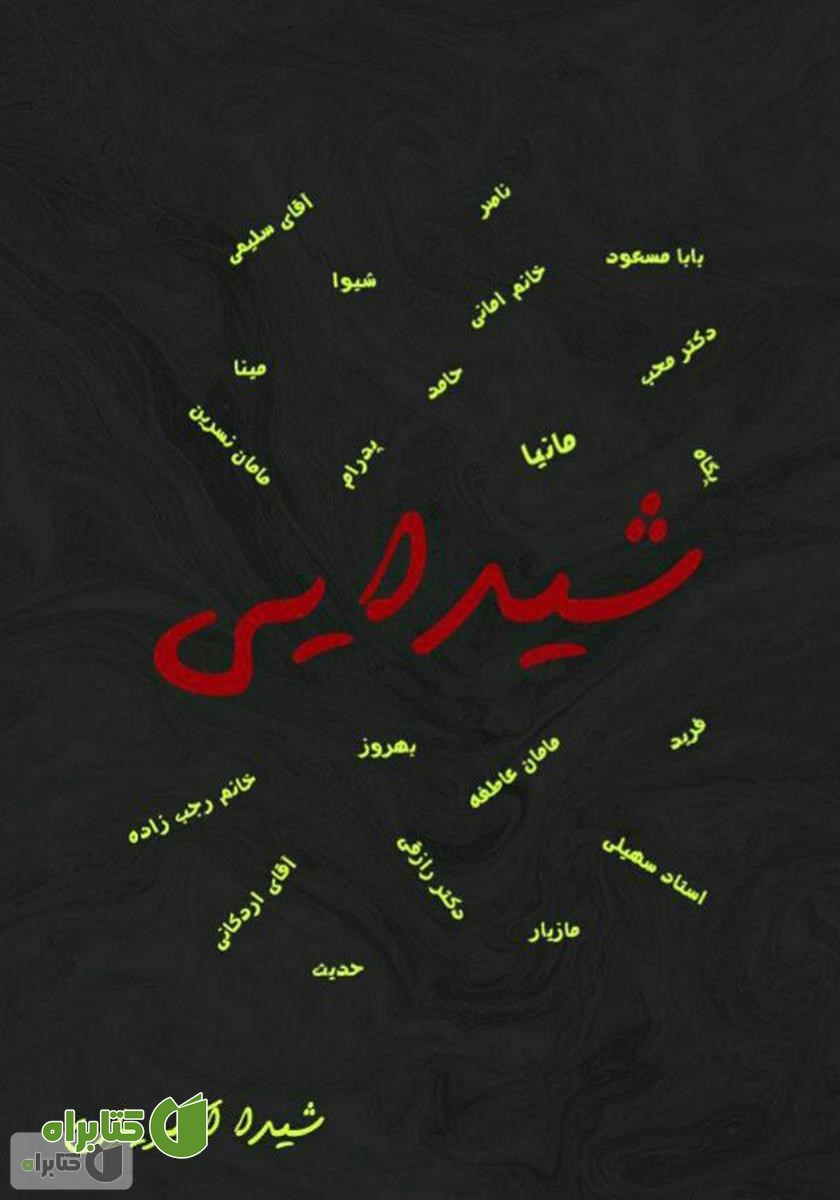 ناصر
آقای سلیمی
بابا مسعود
شیوا
خانم امانی
دکتر محب
مینا
حامد
مامان نسرین
پدرام
مانیا
پگاه
شیدایی
فرید
بهروز
مامان عاطفه
خانم رجب زاده
استاد سهیلی
دکتر رازقی
آقای اردکانی
مازیار
حدیث
شیدا
کتابراه
کتابراه